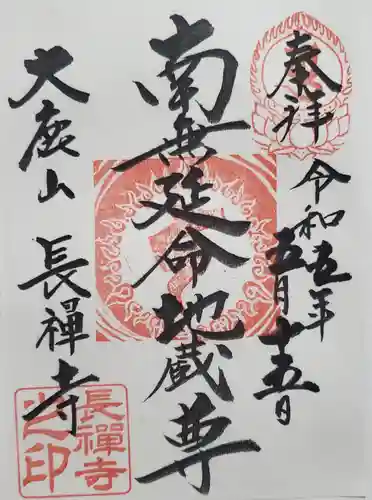 奉拝
令和五年
五月十五日
南無延命地蔵尊
大鹿山 長禅寺
長禪寺之印